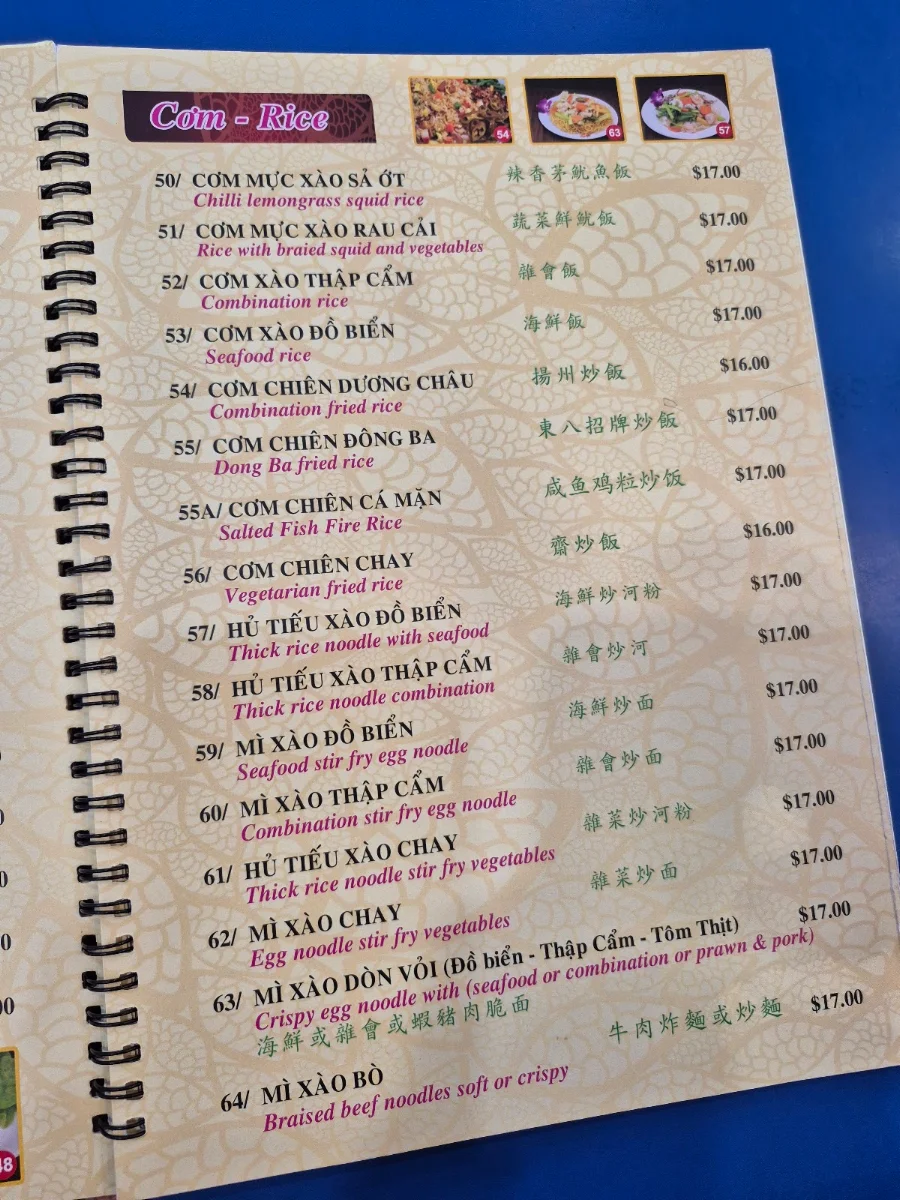 Cơm - Rice
54
63
57
50/ CƠM MỰC XÀO SẢ ỚT 辣香茅魷魚飯 $17.00
Chilli lemongrass squid rice
51/ CƠM MỰC XÀO RAU CẢI 蔬菜鮮魷飯 $17.00
Rice with braied squid and vegetables
52/ CƠM XÀO THẬP CẨM 雜會飯 $17.00
Combination rice
53/ CƠM XÀO ĐỒ BIỂN 海鮮飯 $17.00
Seafood rice
54/ CƠM CHIÊN DƯƠNG CHÂU 揚州炒飯 $16.00
Combination fried rice
55/ CƠM CHIÊN ĐÔNG BA 東八招牌炒飯 $17.00
Dong Ba fried rice
55A/ CƠM CHIÊN CÁ MẶN 咸鱼鸡粒炒饭 $17.00
Salted Fish Fire Rice
56/ CƠM CHIÊN CHAY 齋炒飯 $16.00
Vegetarian fried rice
57/ HỦ TIẾU XÀO ĐỒ BIỂN 海鮮炒河粉 $17.00
Thick rice noodle with seafood
58/ HỦ TIẾU XÀO THẬP CẨM 雜會炒河 $17.00
Thick rice noodle combination
59/ MÌ XÀO ĐỒ BIỂN 海鮮炒面 $17.00
Seafood stir fry egg noodle
60/ MÌ XÀO THẬP CẨM 雜會炒面 $17.00
Combination stir fry egg noodle
61/ HỦ TIẾU XÀO CHAY 雜菜炒河粉 $17.00
Thick rice noodle stir fry vegetables
62/ MÌ XÀO CHAY 雜菜炒面 $17.00
Egg noodle stir fry vegetables
63/ MÌ XÀO DÒN VỎI (Đồ biển - Thập Cẩm - Tôm Thịt) $17.00
Crispy egg noodle with (seafood or combination or prawn & pork)
海鮮或雜會或蝦豬肉脆面
64/ MÌ XÀO BÒ 牛肉炸麵或炒麵 $17.00
Braised beef noodles soft or crispy
48